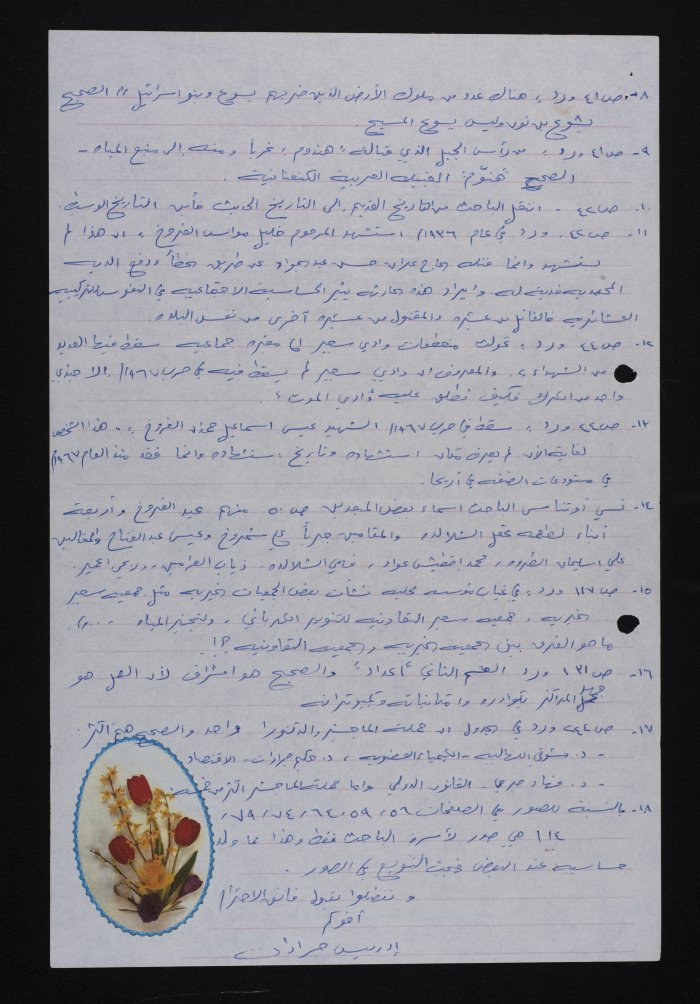 ٨- ص٤١ ورد، هناك عدد من ملوك الأرض الذين ضربهم يسوع وبنو اسرائيل،، الصحيح
يشوع بن نون وليس يسوع المسيح.
٩- ص٤١ ورد، من رأس الجبل الذي قبالة، هندوم، غرباً ومنه إلى منبع المياه -
الصحيح هنّوم القبيلة العربية الكنعانية.
١٠- ص٤٢ - انتقل الباحث من التاريخ القديم إلى التاريخ الحديث فأين التاريخ الوسيط
١١- ص٤٢ ورد في عام ١٩٣٦م استشهد المرحوم خليل الفروخ، ان هذا لم
يستشهد وانما قتله الحاج حسن عبدالجواد عن طريق الخطأ ودفع الدية
المحمدية وايراد هذه الحادثة يثير الحساسية الاجتماعية في النفوس للتركيبة
العشائرية فالقاتل من عشيرة والمقتول من عشيرة أخرى من نفس البلدة.
١٢- ص٤٤ ورد، تحولت منعطفات وادي سعير الى مقبرة جماعية سقط فيها العديد
من الشهداء،، والمعروف ان وادي سعير لم يسقط فيه في حرب ١٩٦٧م الا جندي
واحد من الكرك فكيف نطلق عليه وادي الموت؟
١٣- ص٤٤ ورد، سقط في حرب ١٩٦٧م الشهيد عيسى اسماعيل الفروخ،- هذا الشخص
لغاية الآن لم يعرف مكان استشهاده وتاريخ استشهاده وانما فقد منذ العام ١٩٦٧م
في مستودعات الضفة في أريحا.
١٤- نسي أو تناسى الباحث اسماء بعض المبعدين ص٥٠ منهم عيد الفروخ وأربعة
أبناء الشلالدة والمقامين جبراً علي شمروخ وعيسى عبدالفتاح والمقاتلين
علي سليمان الطروة، محمد عواد، الشلالدة. ذياب
١٥- ص١١٧ ورد، في غياب مؤسسة محلية نشأت بعض الجمعيات الخيرية مثل جمعية سعير
الخيرية، جمعية سعير التعاونية للتنوير الكهربائي، المياه ....).
ما هو الفرق بين الجمعية الخيرية والجمعية التعاونية؟!!
١٦- ص١٣١ ورد القسم الثاني "اعداد" والصحيح هو اشراف لأن العمل هو
المراكز بكوادره وامكانياته
١٧- ص٢٤٤ ورد في الجدول ان حملة الماجستير والدكتوراة واحد والصحيح هم أكثر:
- د. شوقي - الكيمياء العضوية، د. حكيم جرادات - الاقتصاد
- د. جهاد - القانون الدولي واما حملة الماجستير أكثر من خمسة.
١٨- بالنسبة للصور في الصفحات ٥٦، ٥٩، ٦٤، ٧٤، ٧٩،
١١٢ هي صور لأسرة الباحث فقط وهذا مما ولد
حساسية عند البعض فيجب التنويع في الصور.
وتفضلوا بقبول فائق الاحترام
أخوكم
إدريس جرادات